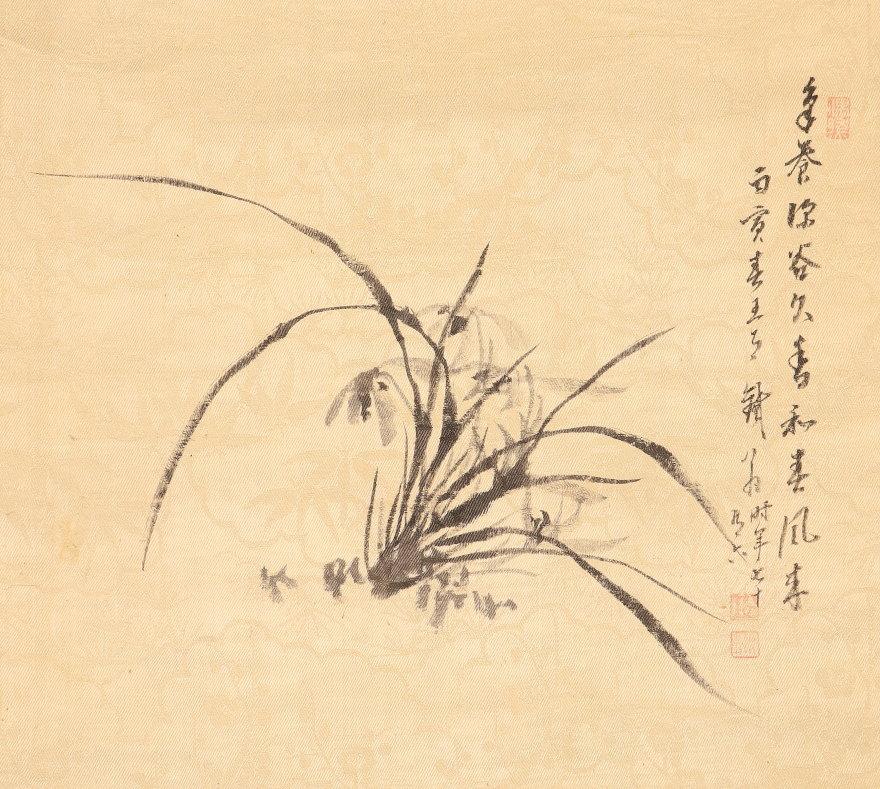 養深谷久香和春風來
丙寅春王正 鐵翁
時年七十
有六